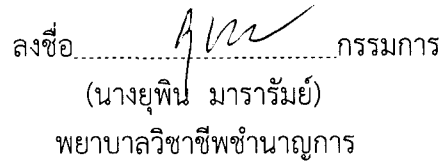 ลงชื่อ........................................กรรมการ
(นางยุพิน มารารัมย์)
พยาบาลวิชาชีพชำนาญการ